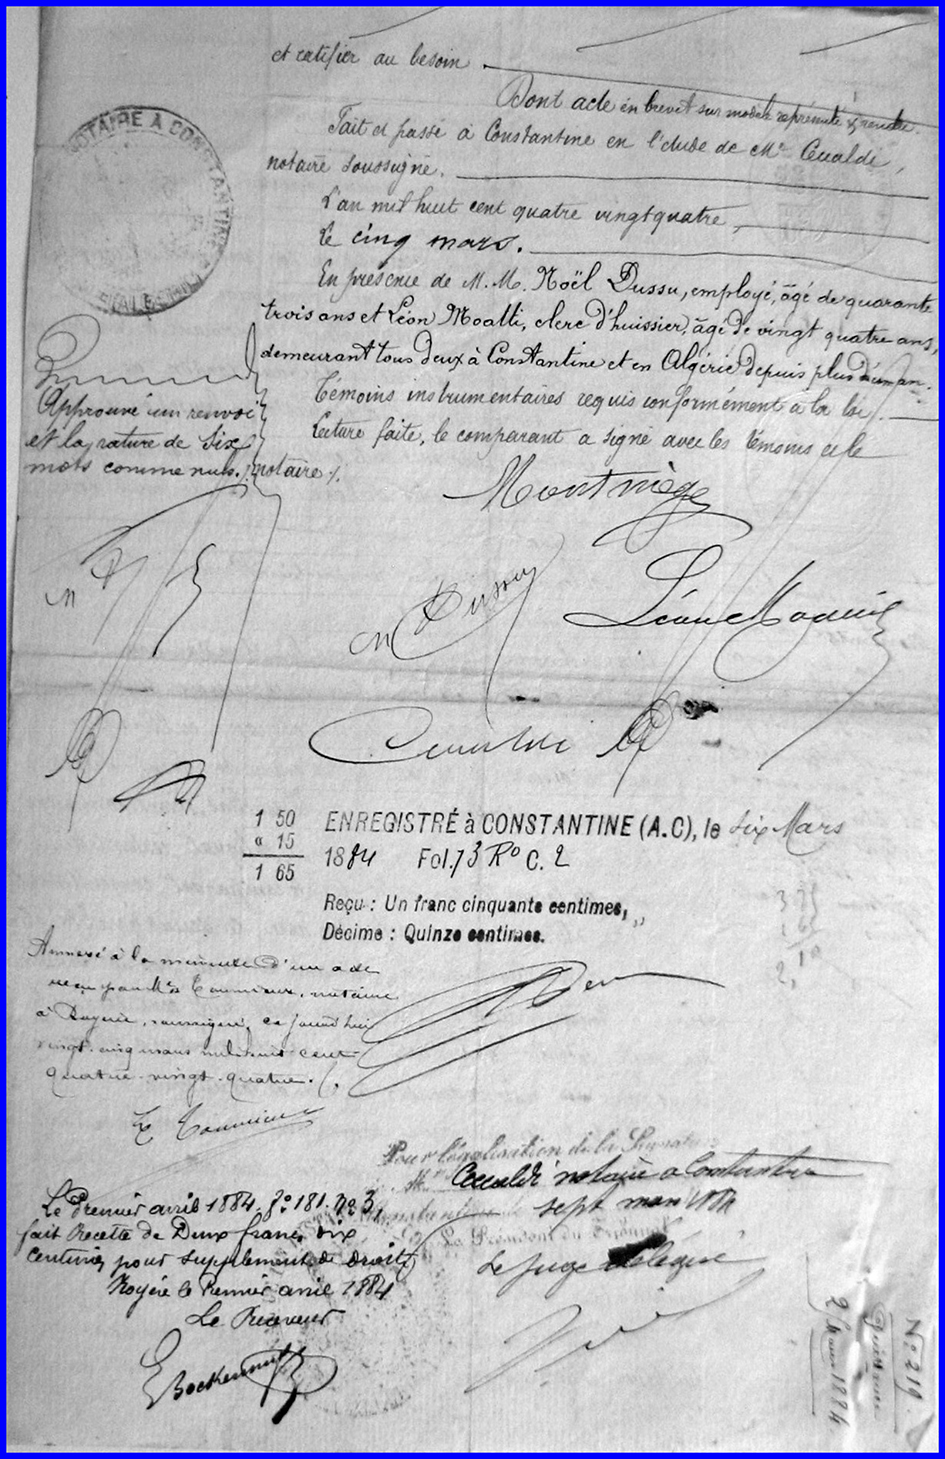 et ratifier au besoin.
Dont acte en brevet sur modèle représenté & rendu.
Fait et passé à Constantine en l'étude de Me Ceccaldi,
notaire soussigné.
L'an mil huit cent quatre vingt quatre,
le cinq mars.
En présence de M. M. Noël Dussu, employé, âgé de quarante
trois ans et Léon Moatti, clerc d'huissier, âgé de vingt quatre ans,
demeurant tous deux à Constantine et en Algérie depuis plus d'un an.
Témoins instrumentaires requis conformément à la loi.
Lecture faite, le comparant a signé avec les témoins et le
notaire ./.
NOTAIRE A CONSTANTINE
Approuvé un renvoi
et la rature de six
mots comme nuls.
Montmège
Léon
Ceccaldi
1 50
" 15
1 65
ENREGISTRÉ à CONSTANTINE (A.C), le six Mars
1884 Fol. 73 Ro C. 2
Reçu : Un franc cinquante centimes,
Décime : Quinze centimes.
Annexé à la minute d'un acte
reçu par Me notaire
à soussigné, ce jourd'hui
vingt-cinq mars mil huit cent
quatre-vingt-quatre ./.
Pour légalisation de la Signature
Me Ceccaldi notaire à Constantine
sept mars 1884
Le Président du Tribunal
Le Juge délégué
Le Premier avril 1884, fo 181, No 3,
fait Recette de Deux francs dix
centimes pour supplément de droits
le Premier avril 1884
Le Receveur
No 219
Quittance
1884